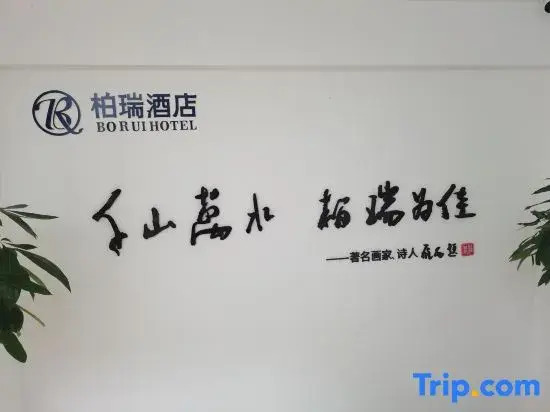 柏瑞酒店
BORUI HOTEL
千山萬水 柏瑞为佳
——著名画家.诗人
Trip.com